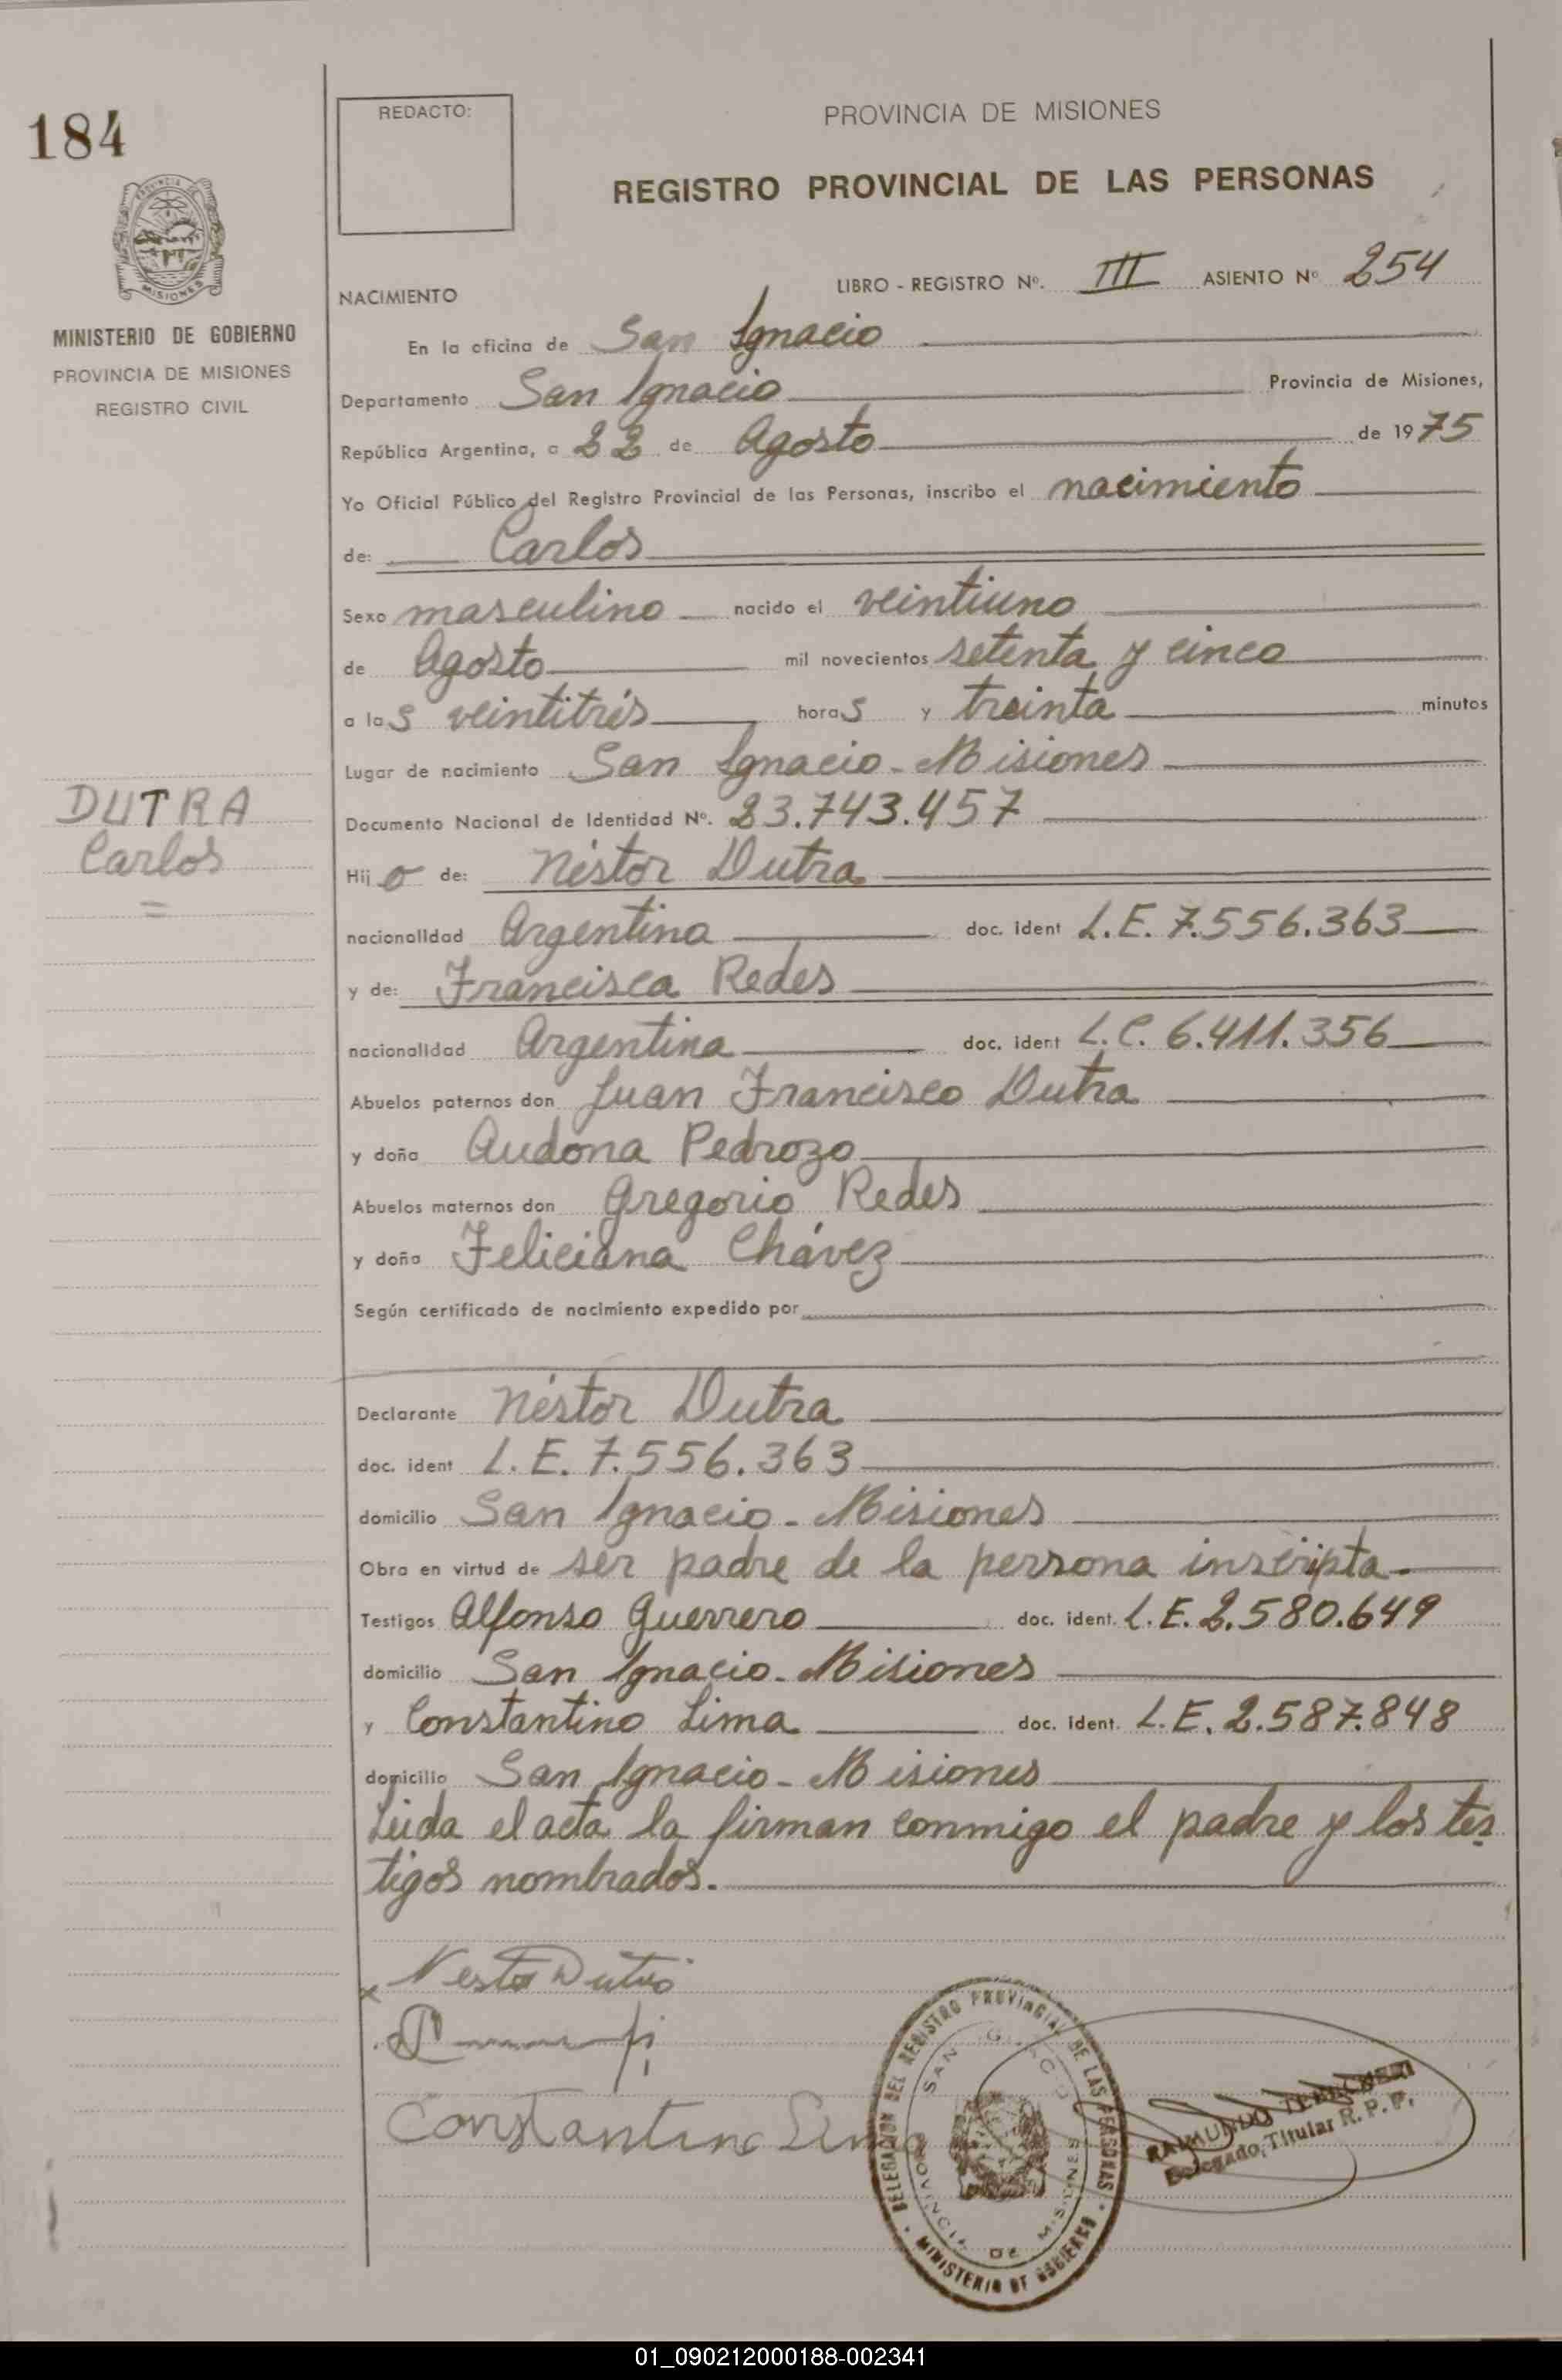 184
REDACTO:
PROVINCIA DE MISIONES
REGISTRO PROVINCIAL DE LAS PERSONAS
MISIONES
MINISTERIO DE GOBIERNO
PROVINCIA DE MISIONES
REGISTRO CIVIL
LIBRO - REGISTRO Nº. III ASIENTO Nº 254
NACIMIENTO
En la oficina de San Ignacio
Departamento San Ignacio Provincia de Misiones,
República Argentina, a 22 de Agosto de 1975
Yo Oficial Público del Registro Provincial de las Personas, inscribo el nacimiento
de: Carlos
Sexo masculino nacido el veintiuno
de Agosto mil novecientos setenta y cinco
a las veintitrés horas y treinta minutos
Lugar de nacimiento San Ignacio - Misiones
DUTRA
Carlos
Documento Nacional de Identidad Nº. 23.743.457
Hijo de: Néstor Dutra
nacionalidad Argentina doc. ident L.E. 7.556.363
y de: Francisca Redes
nacionalidad Argentina doc. ident L.C. 6.411.356
Abuelos paternos don Juan Francisco Dutra
y doña Audona Pedrozo
Abuelos maternos don Gregorio Redes
y doña Feliciana Chávez
Según certificado de nacimiento expedido por
Declarante Néstor Dutra
doc. ident L.E. 7.556.363
domicilio San Ignacio - Misiones
Obra en virtud de ser padre de la persona inscripta -
Testigos Alfonso Guerrero doc. ident. L.E. 2.580.649
domicilio San Ignacio - Misiones
y Constantino Lima doc. ident. L.E. 2.587.848
domicilio San Ignacio - Misiones
Leída el acta la firman conmigo el padre y los tes
tigos nombrados.
x Nestor Dutra
Constantino Lima
DELEGACION DEL REGISTRO PROVINCIAL DE LAS PERSONAS
MINISTERIO DE GOBIERNO
SAN IGNACIO
PROVINCIA DE MISIONES
RAIMUNDO
Delegado Titular R. P. P.
01_090212000188-002341